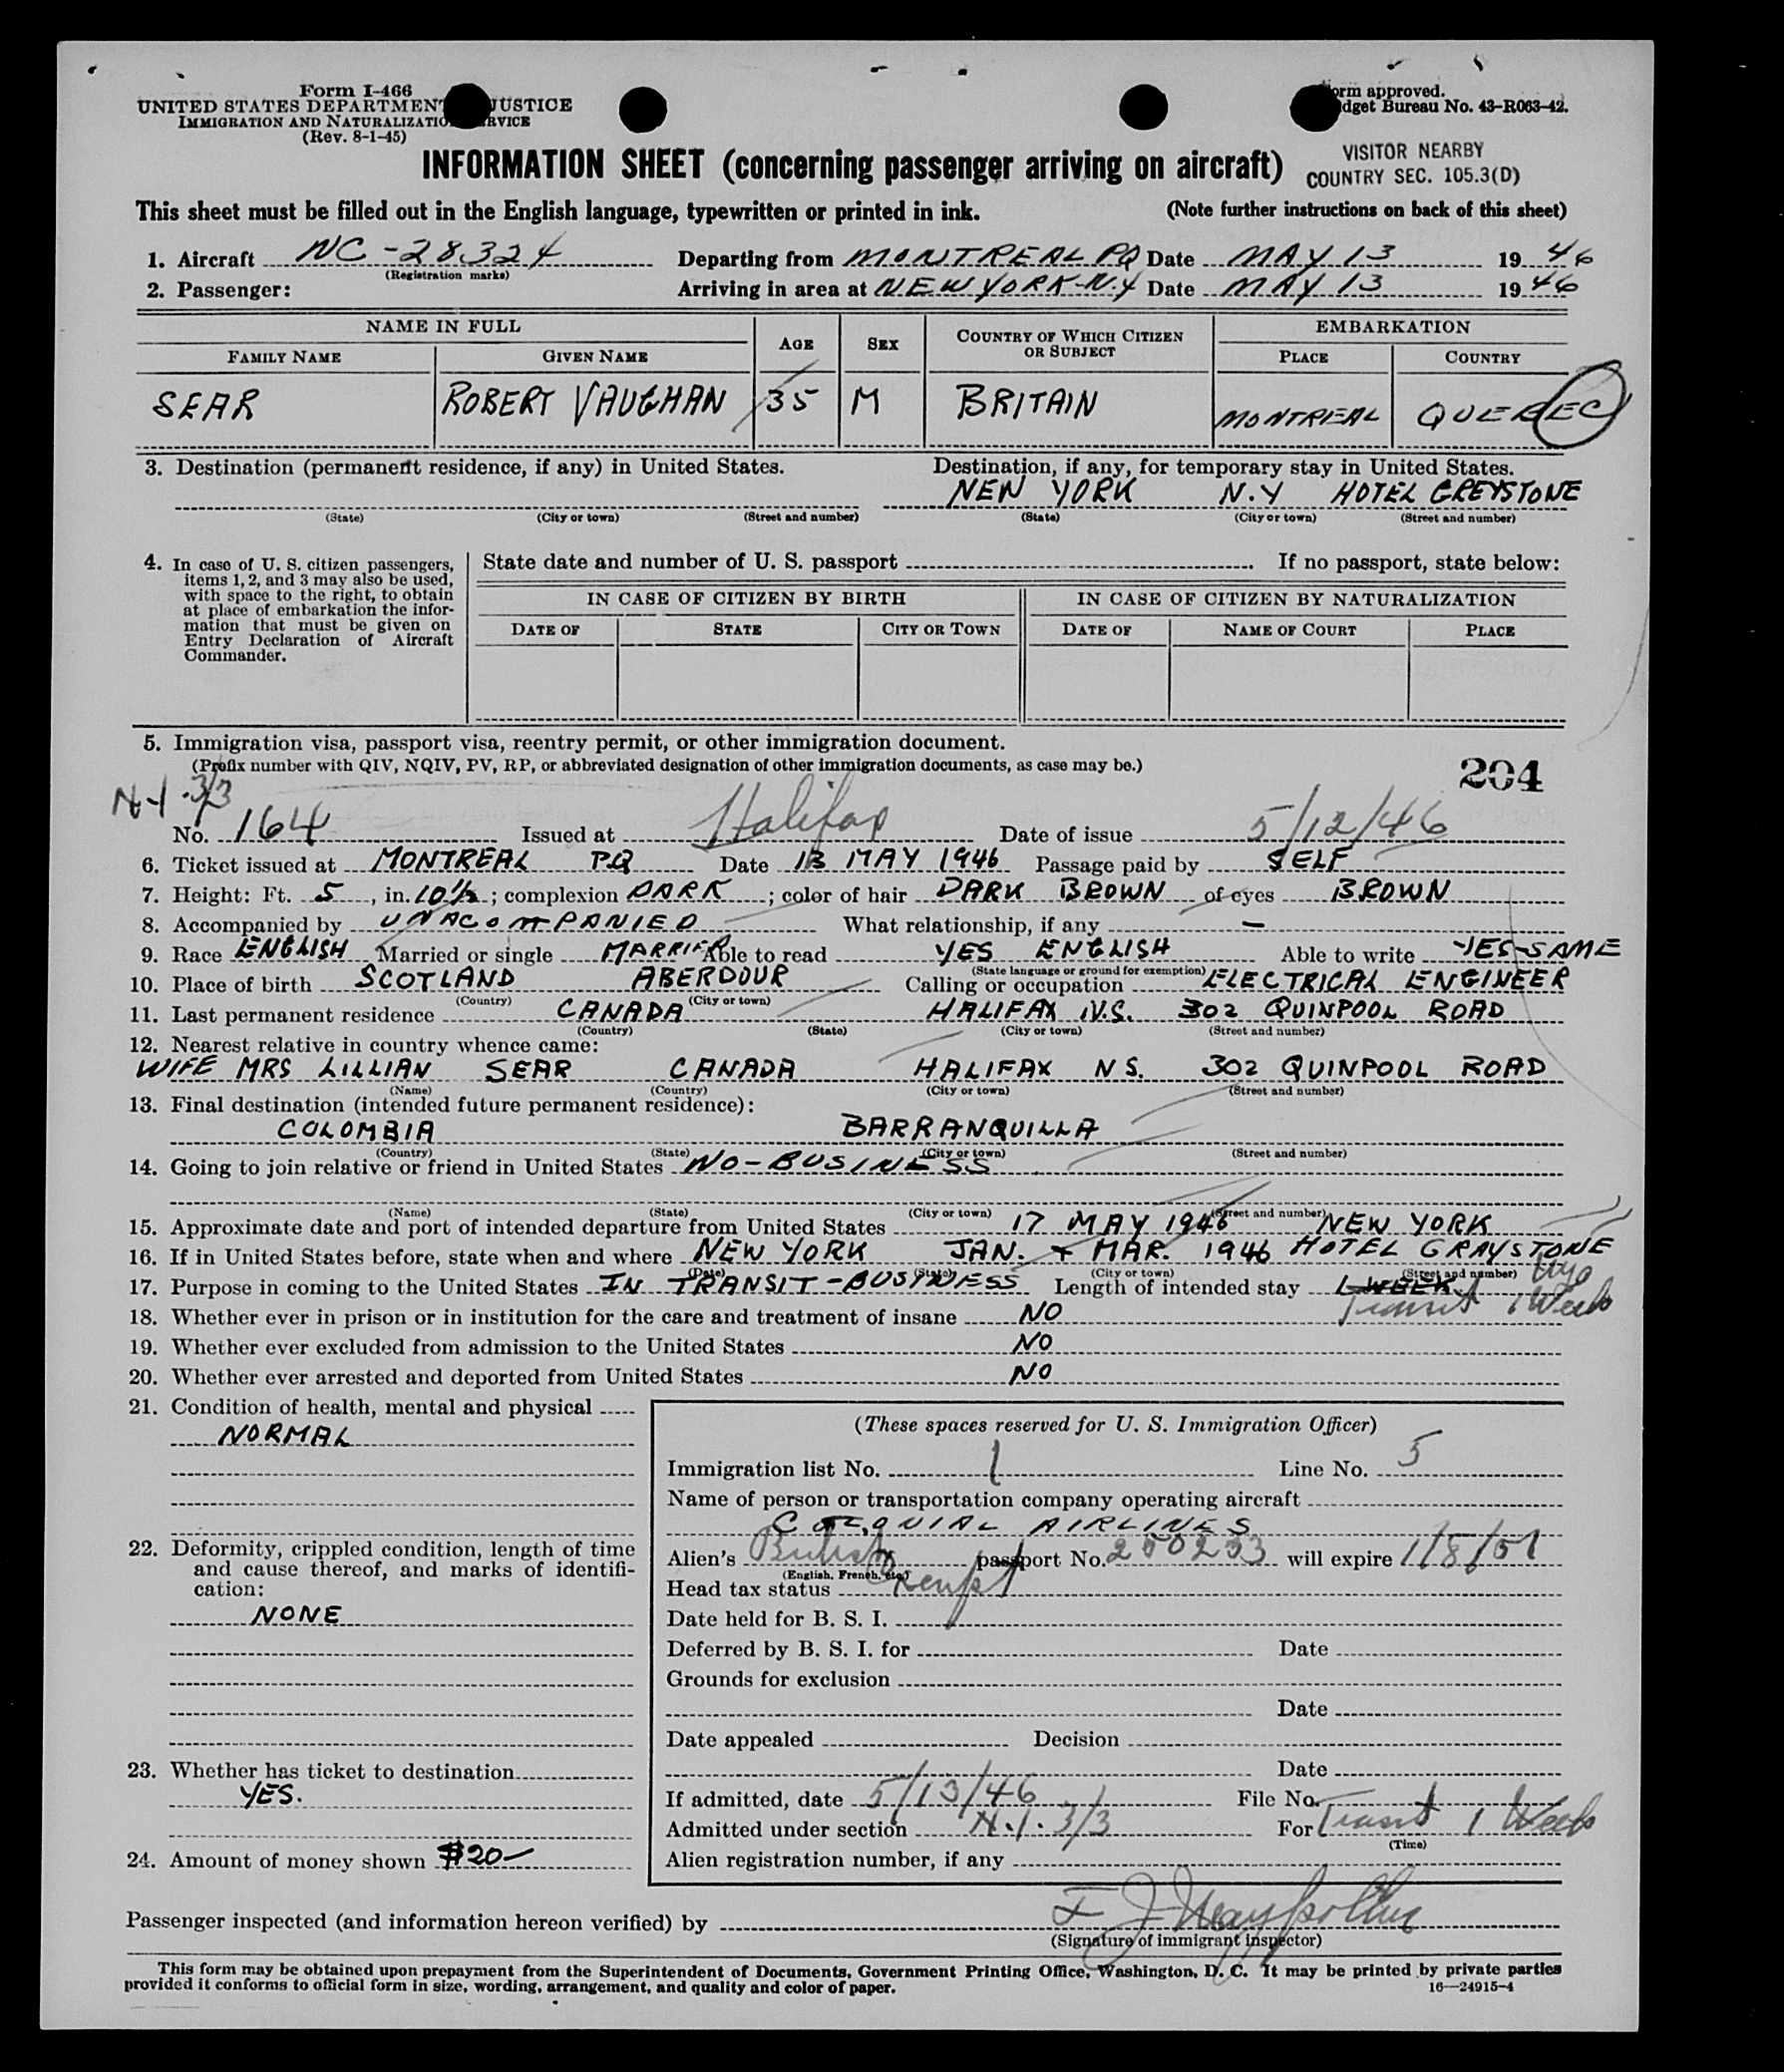 Form I-466
UNITED STATES DEPARTMENT JUSTICE
IMMIGRATION AND NATURALIZATION SERVICE
(Rev. 8-1-45)
Form approved.
Budget Bureau No. 43-R063-42.
VISITOR NEARBY
COUNTRY SEC. 105.3(D)
INFORMATION SHEET (concerning passenger arriving on aircraft)
This sheet must be filled out in the English language, typewritten or printed in ink. (Note further instructions on back of this sheet)
1. Aircraft NC-28324 Departing from MONTREAL PQ Date MAY 13 1946
(Registration marks)
2. Passenger: Arriving in area at NEW YORK-N.Y Date MAY 13 1946
NAME IN FULL AGE SEX COUNTRY OF WHICH CITIZEN OR SUBJECT EMBARKATION
FAMILY NAME GIVEN NAME PLACE COUNTRY
SEAR ROBERT VAUGHAN 35 M BRITAIN MONTREAL QUEBEC
3. Destination (permanent residence, if any) in United States. Destination, if any, for temporary stay in United States.
NEW YORK N.Y HOTEL GREYSTONE
(State) (City or town) (Street and number) (State) (City or town) (Street and number)
4. In case of U. S. citizen passengers, items 1, 2, and 3 may also be used, with space to the right, to obtain at place of embarkation the information that must be given on Entry Declaration of Aircraft Commander.
State date and number of U. S. passport If no passport, state below:
IN CASE OF CITIZEN BY BIRTH IN CASE OF CITIZEN BY NATURALIZATION
DATE OF STATE CITY OR TOWN DATE OF NAME OF COURT PLACE
5. Immigration visa, passport visa, reentry permit, or other immigration document.
(Prefix number with QIV, NQIV, PV, RP, or abbreviated designation of other immigration documents, as case may be.)
204
N-1 3/3
No. 164 Issued at Halifax Date of issue 5/12/46
6. Ticket issued at MONTREAL PQ Date 13 MAY 1946 Passage paid by SELF
7. Height: Ft. 5, in. 10½; complexion DARK; color of hair DARK BROWN of eyes BROWN
8. Accompanied by UNACOMPANIED What relationship, if any —
9. Race ENGLISH Married or single MARRIED Able to read YES ENGLISH Able to write YES-SAME
(State language or ground for exemption)
10. Place of birth SCOTLAND ABERDOUR Calling or occupation ELECTRICAL ENGINEER
(Country) (City or town)
11. Last permanent residence CANADA HALIFAX N.S. 302 QUINPOOL ROAD
(Country) (State) (City or town) (Street and number)
12. Nearest relative in country whence came:
WIFE MRS LILLIAN SEAR CANADA HALIFAX N S. 302 QUINPOOL ROAD
(Name) (Country) (City or town) (Street and number)
13. Final destination (intended future permanent residence):
COLOMBIA BARRANQUILLA
(Country) (State) (City or town) (Street and number)
14. Going to join relative or friend in United States NO-BUSINESS
(Name) (State) (City or town) (Street and number)
15. Approximate date and port of intended departure from United States 17 MAY 1946 NEW YORK
16. If in United States before, state when and where NEW YORK JAN. + MAR. 1946 HOTEL GRAYSTONE
(Date) (State) (City or town) (Street and number)
17. Purpose in coming to the United States IN TRANSIT-BUSINESS Length of intended stay 1 WEEK
Transit 1 Week
18. Whether ever in prison or in institution for the care and treatment of insane NO
19. Whether ever excluded from admission to the United States NO
20. Whether ever arrested and deported from United States NO
21. Condition of health, mental and physical
NORMAL
22. Deformity, crippled condition, length of time and cause thereof, and marks of identification:
NONE
23. Whether has ticket to destination
YES.
24. Amount of money shown $20—
(These spaces reserved for U. S. Immigration Officer)
Immigration list No. 1 Line No. 5
Name of person or transportation company operating aircraft
COLONIAL AIRLINES
Alien's British passport No. 250253 will expire 1/8/51
(English, French, etc.)
Head tax status Exempt
Date held for B. S. I.
Deferred by B. S. I. for Date
Grounds for exclusion
Date
Date appealed Decision
Date
If admitted, date 5/13/46 File No.
Admitted under section N.1. 3/3 For Transit 1 Week
(Time)
Alien registration number, if any
Passenger inspected (and information hereon verified) by
(Signature of immigrant inspector)
This form may be obtained upon prepayment from the Superintendent of Documents, Government Printing Office, Washington, D. C. It may be printed by private parties
provided it conforms to official form in size, wording, arrangement, and quality and color of paper. 16—24915-4